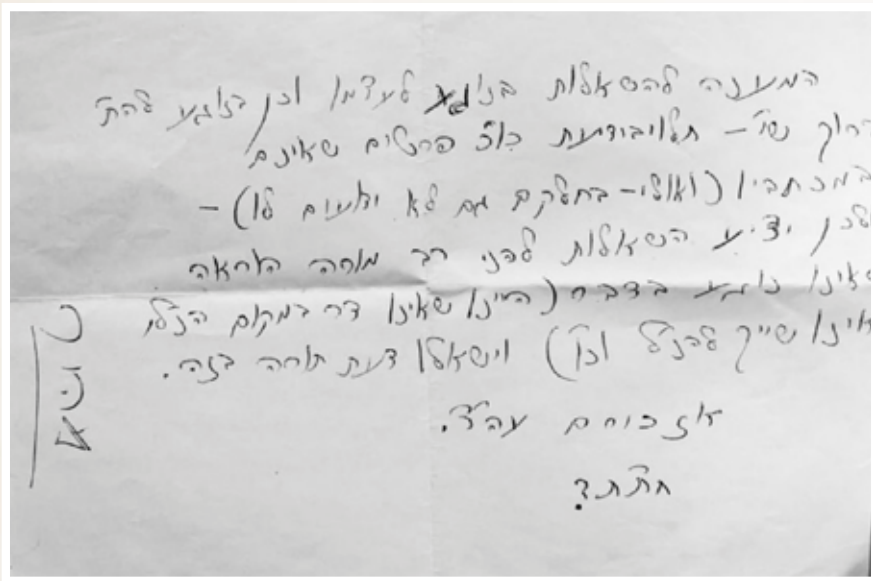 המענה להשאלות בנוגע לעצמו וכן בנוגע להת'
נשי' – תלוי בידיעת כו"כ פרטים שאינם
במכתביו (ואולי – בחלקם גם לא ידועים לו) –
ולכן יציע השאלות לפני רב מורה הוראה
שאינו נוגע בדבר (היינו שאינו דר במקום הנ"ל,
אינו שייך להנ"ל וכו') וישאלו דעת תורה בזה.
אזכירם עה"צ.